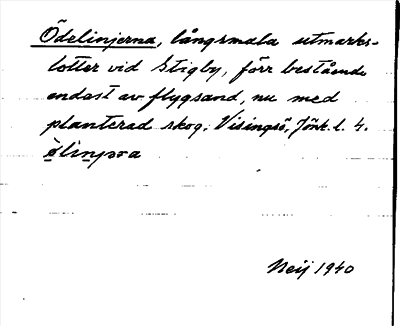 Ödelinjerna, långsmala utmarks-
lotter vid Stigby, förr bestående
endast av flygsand, nu med
planterad skog; Visingsö, Jönk. l. 4.
Neij 1940